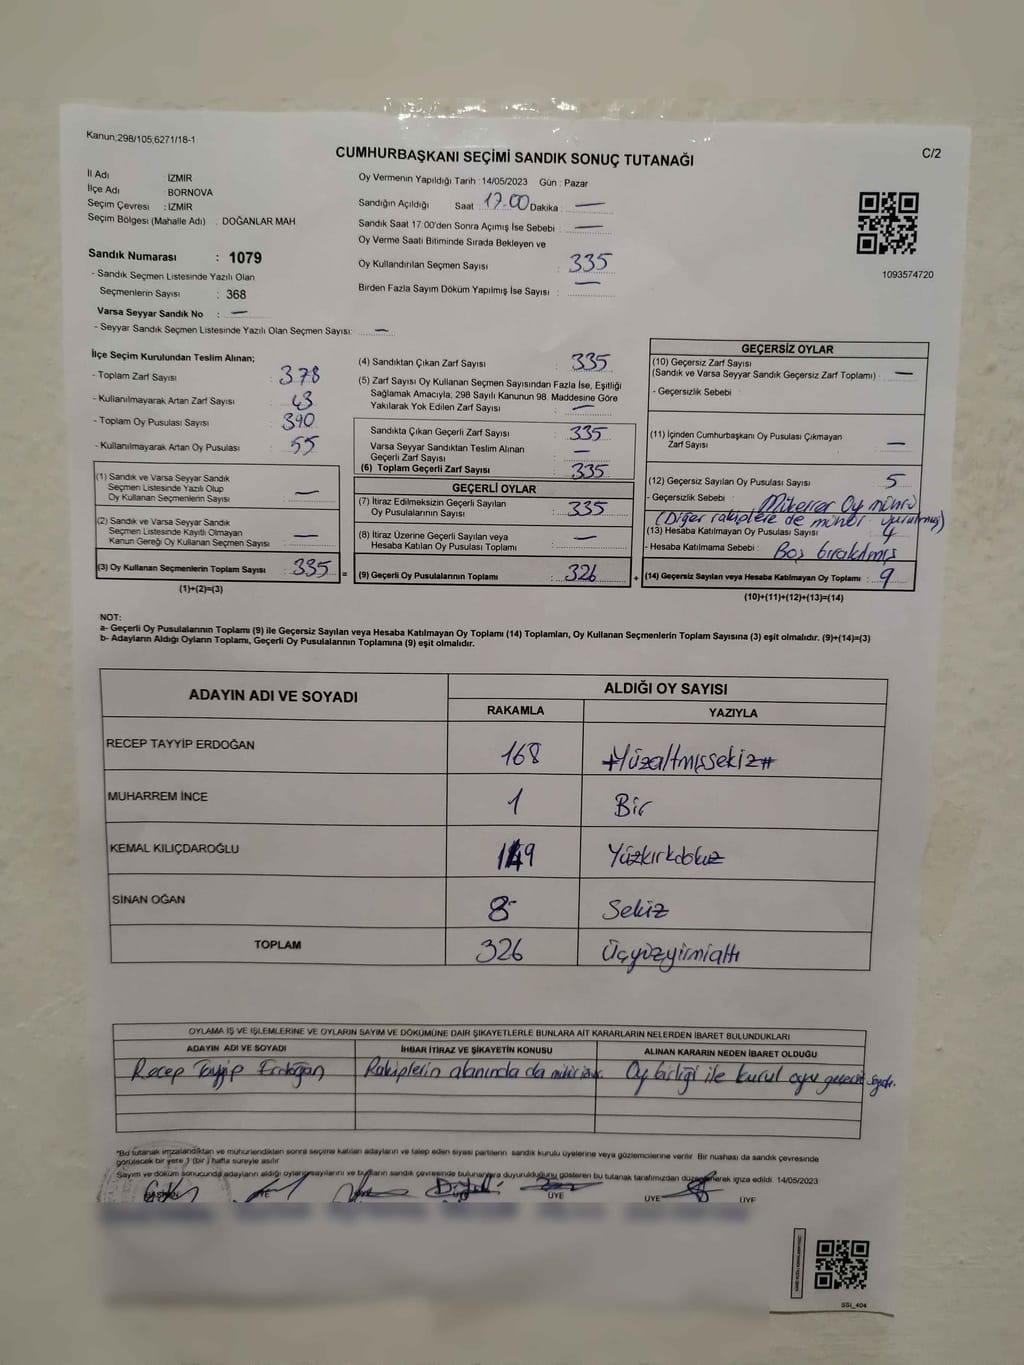 Kanun:298/105,6271/18-1
CUMHURBAŞKANI SEÇİMİ SANDIK SONUÇ TUTANAĞI
C/2
İl Adı : İZMİR
İlçe Adı : BORNOVA
Seçim Çevresi : İZMİR
Seçim Bölgesi (Mahalle Adı) : DOĞANLAR MAH
Sandık Numarası : 1079
- Sandık Seçmen Listesinde Yazılı Olan
Seçmenlerin Sayısı : 368
Varsa Seyyar Sandık No : —
- Seyyar Sandık Seçmen Listesinde Yazılı Olan Seçmen Sayısı: —
Oy Vermenin Yapıldığı Tarih : 14/05/2023 Gün : Pazar
Sandığın Açıldığı Saat : 17.00 Dakika : —
Sandık Saat 17:00'den Sonra Açımış İse Sebebi : —
Oy Verme Saati Bitiminde Sırada Bekleyen ve
Oy Kullandırılan Seçmen Sayısı : 335
Birden Fazla Sayım Döküm Yapılmış İse Sayısı : —
1093574720
İlçe Seçim Kurulundan Teslim Alınan;
- Toplam Zarf Sayısı : 378
- Kullanılmayarak Artan Zarf Sayısı : 43
- Toplam Oy Pusulası Sayısı : 390
- Kullanılmayarak Artan Oy Pusulası : 55
(1) Sandık ve Varsa Seyyar Sandık
Seçmen Listesinde Yazılı Olup
Oy Kullanan Seçmenlerin Sayısı : —
(2) Sandık ve Varsa Seyyar Sandık
Seçmen Listesinde Kayıtlı Olmayan
Kanun Gereği Oy Kullanan Seçmen Sayısı : —
(3) Oy Kullanan Seçmenlerin Toplam Sayısı : 335 =
(1)+(2)=(3)
(4) Sandıktan Çıkan Zarf Sayısı : 335
(5) Zarf Sayısı Oy Kullanan Seçmen Sayısından Fazla İse, Eşitliği
Sağlamak Amacıyla, 298 Sayılı Kanunun 98. Maddesine Göre
Yakılarak Yok Edilen Zarf Sayısı : —
Sandıkta Çıkan Geçerli Zarf Sayısı : 335
Varsa Seyyar Sandıktan Teslim Alınan
Geçerli Zarf Sayısı : —
(6) Toplam Geçerli Zarf Sayısı : 335
GEÇERLİ OYLAR
(7) İtiraz Edilmeksizin Geçerli Sayılan
Oy Pusulalarının Sayısı : 335
(8) İtiraz Üzerine Geçerli Sayılan veya
Hesaba Katılan Oy Pusulası Toplamı : —
(9) Geçerli Oy Pusulalarının Toplamı : 326 +
GEÇERSİZ OYLAR
(10) Geçersiz Zarf Sayısı
(Sandık ve Varsa Seyyar Sandık Geçersiz Zarf Toplamı) : —
- Geçersizlik Sebebi
(11) İçinden Cumhurbaşkanı Oy Pusulası Çıkmayan
Zarf Sayısı : —
(12) Geçersiz Sayılan Oy Pusulası Sayısı : 5
- Geçersizlik Sebebi : Mükerrer Oy mührü
(Diğer rakiplere de mühür vurulmuş)
(13) Hesaba Katılmayan Oy Pusulası Sayısı : 4
- Hesaba Katılmama Sebebi : Boş bırakılmış
(14) Geçersiz Sayılan veya Hesaba Katılmayan Oy Toplamı : 9
(10)+(11)+(12)+(13)=(14)
NOT:
a- Geçerli Oy Pusulalarının Toplamı (9) ile Geçersiz Sayılan veya Hesaba Katılmayan Oy Toplamı (14) Toplamları, Oy Kullanan Seçmenlerin Toplam Sayısına (3) eşit olmalıdır. (9)+(14)=(3)
b- Adayların Aldığı Oyların Toplamı, Geçerli Oy Pusulalarının Toplamına (9) eşit olmalıdır.
ADAYIN ADI VE SOYADI
ALDIĞI OY SAYISI
RAKAMLA YAZIYLA
RECEP TAYYİP ERDOĞAN 168 #Yüzaltmışsekiz#
MUHARREM İNCE 1 Bir
KEMAL KILIÇDAROĞLU 149 Yüzkırkdokuz
SİNAN OĞAN 8 Sekiz
TOPLAM 326 Üçyüzyirmialtı
OYLAMA İŞ VE İŞLEMLERİNE VE OYLARIN SAYIM VE DÖKÜMÜNE DAİR ŞİKAYETLERLE BUNLARA AİT KARARLARIN NELERDEN İBARET BULUNDUKLARI
ADAYIN ADI VE SOYADI İHBAR İTİRAZ VE ŞİKAYETİN KONUSU ALINAN KARARIN NEDEN İBARET OLDUĞU
Recep Tayyip Erdoğan Rakiplerin alanında da Oy birliği ile kurul oyu
*Bu tutanak imzalandıktan ve mühürlendikten sonra seçime katılan adayların ve talep eden siyasi partilerin sandık kurulu üyelerine veya gözlemcilerine verilir. Bir nushası da sandık çevresinde
görülecek bir yere 1 (bir) hafta süreyle asılır
Sayım ve döküm sonucunda adayların aldığı oyların sayılarını ve bunların sandık çevresinde bulunanlara duyurulduğunu gösteren bu tutanak tarafımızdan düzenlenerek imza edildi. 14/05/2023
BAŞKAN ÜYE ÜYE ÜYE
SSİ_404